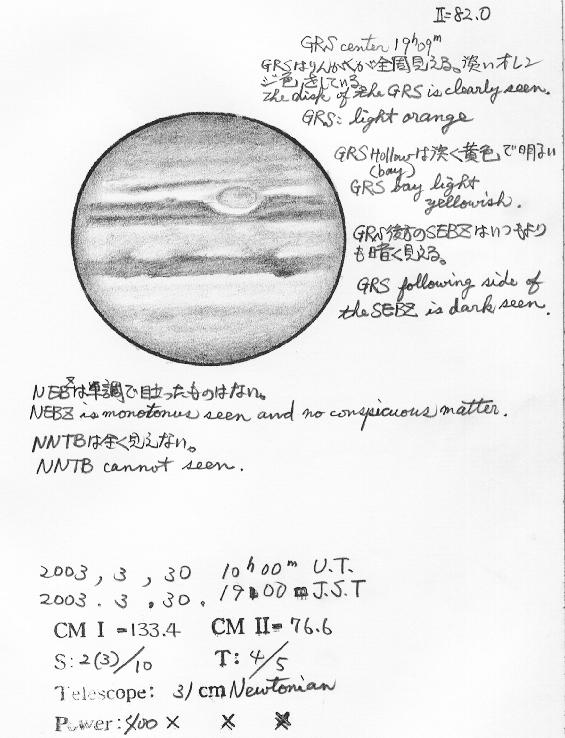 II=82.0
GRS center 19h09m
GRSはりんかくが全周見える。淡いオレン
ジ色をしている。
The disk of the GRS is clearly seen.
GRS: light orange
GRS Hollowは淡く黄色で明るい
(bay)
GRS bay light
yellowish.
GRS後方のSEBZはいつもより
も暗く見える。
GRS following side of
the SEBZ is dark seen.
NEBZは単調で目立ったものはない。
NEBZ is monotonus seen and no conspicuous matter.
NNTBは全く見えない。
NNTB cannot seen.
2003, 3, 30 10h00m U.T.
2003. 3. 30. 19h00m J.S.T
CM I =133.4 CM II= 76.6
S: 2(3)/10 T: 4/5
Telescope: 31cm Newtonian
Power: 400× × ×